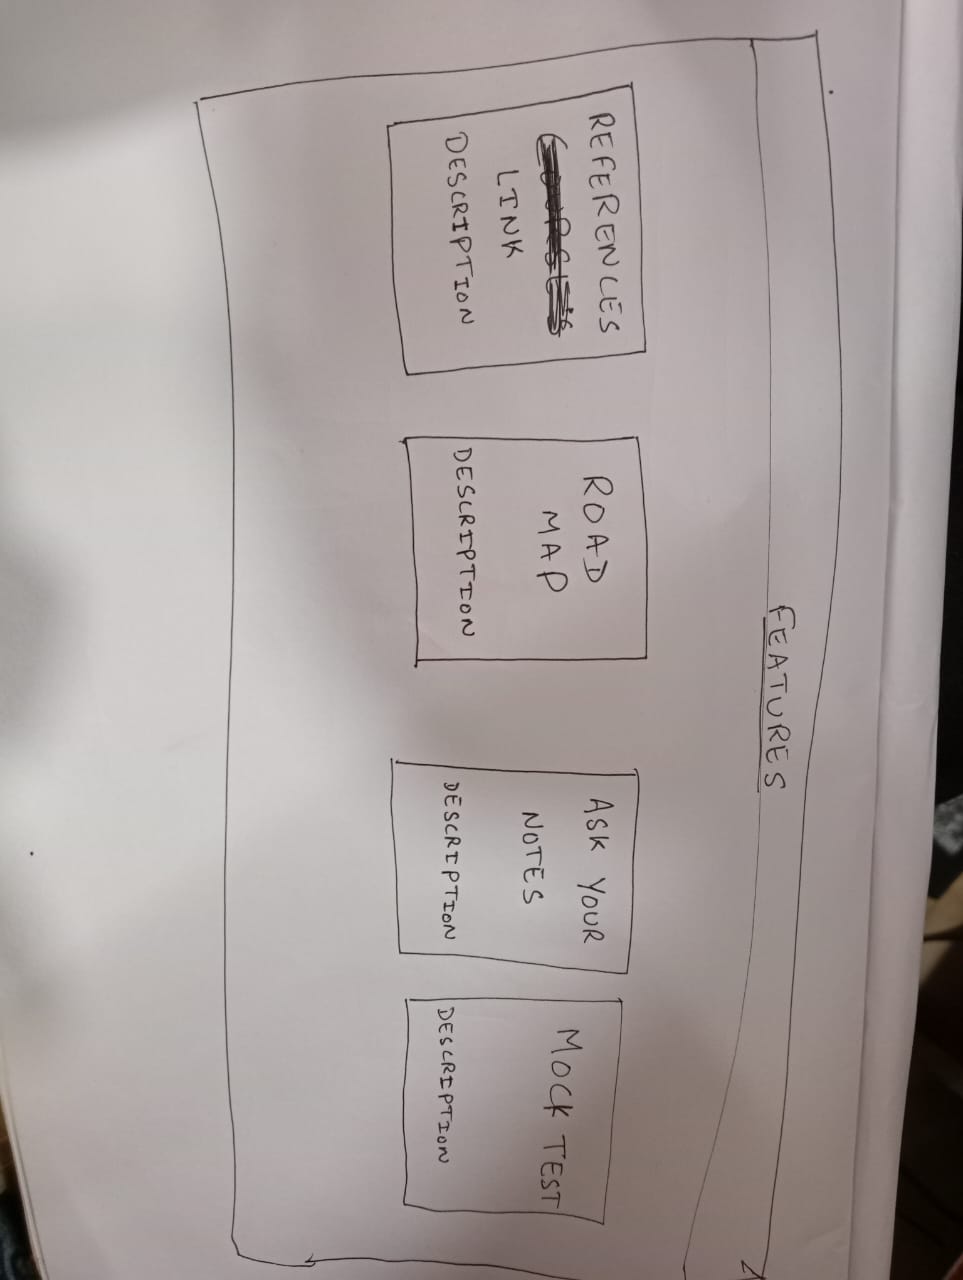 FEATURES
REFERENCES
LINK
DESCRIPTION
ROAD
MAP
DESCRIPTION
ASK YOUR
NOTES
DESCRIPTION
MOCK TEST
DESCRIPTION